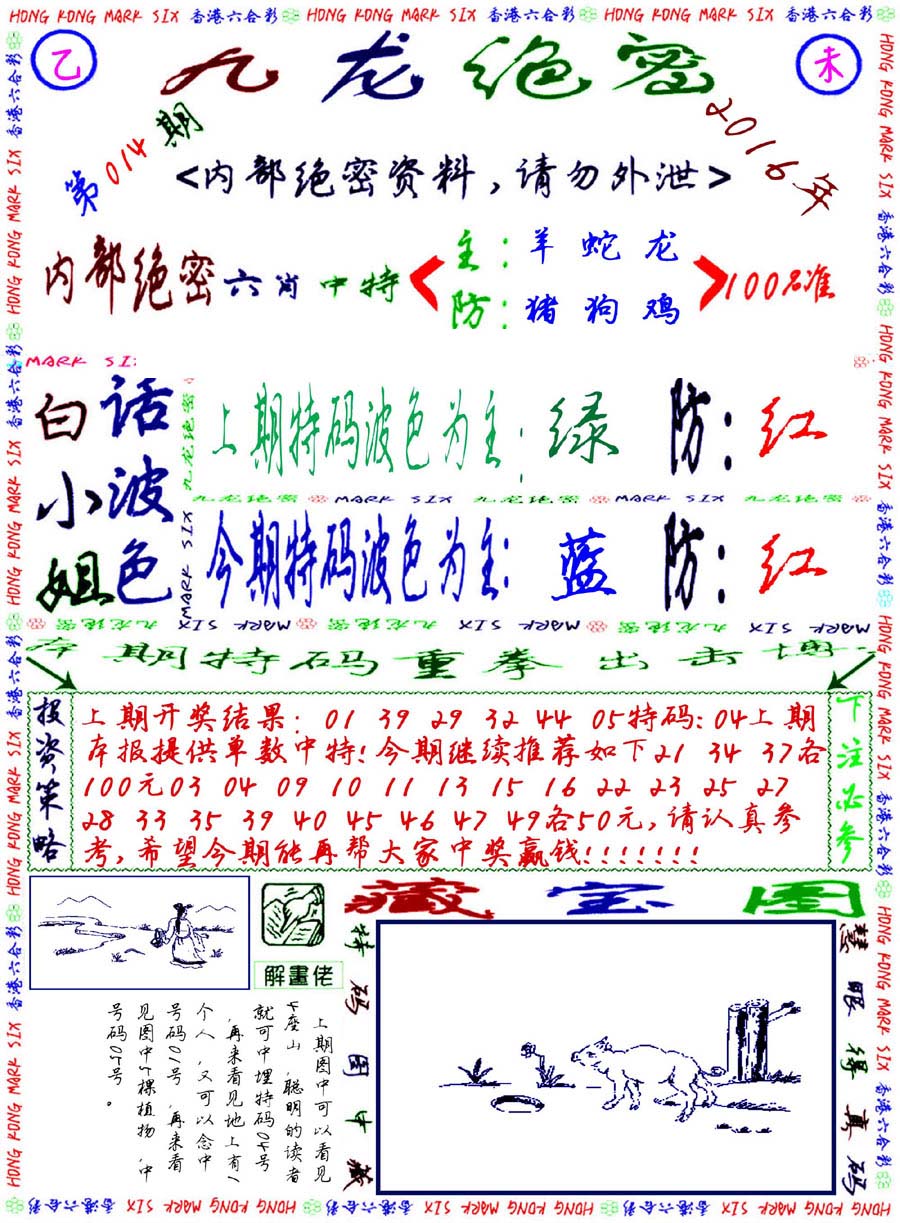 HONG KONG MARK SIX 香港六合彩 HONG KONG MARK SIX 香港六合彩 HONG KONG MARK SIX 香港六合彩
乙
九龙绝密
未
第014期
2016年
<内部绝密资料，请勿外泄>
内部绝密六肖中特
主：羊 蛇 龙
防：猪 狗 鸡
100%准
MARK SI:
白话小波姐色
九龙绝密
上期特码波色为主：绿 防：红
九龙绝密 MARK SIX 九龙绝密 MARK SIX 九龙绝密
MARK SIX
今期特码波色为主：蓝 防：红
MARK SIX 九龙绝密 MARK SIX 九龙绝密 MARK SIX 九龙绝密
本期特码重拳出击博
投资策略
上期开奖结果：01 39 29 32 44 05特码：04上期
本报提供单数中特！今期继续推荐如下21 34 37各
100元03 04 09 10 11 13 15 16 22 23 25 27
28 33 35 39 40 45 46 47 49各50元，请认真参
考，希望今期能再帮大家中奖赢钱！！！！！！！
下注必参
藏宝图
解畫佬
上期图中可以看见
4座山，聪明的读者
就可中埋特码04号
，再来看见地上有1
个人，又可以念中
号码01号，再来看
见图中5棵植物，中
号码05号。
特码图中藏
慧眼得真码
HONG KONG MARK SIX 香港六合彩 HONG KONG MARK SIX 香港六合彩 HONG KONG MARK SIX 香港六合彩